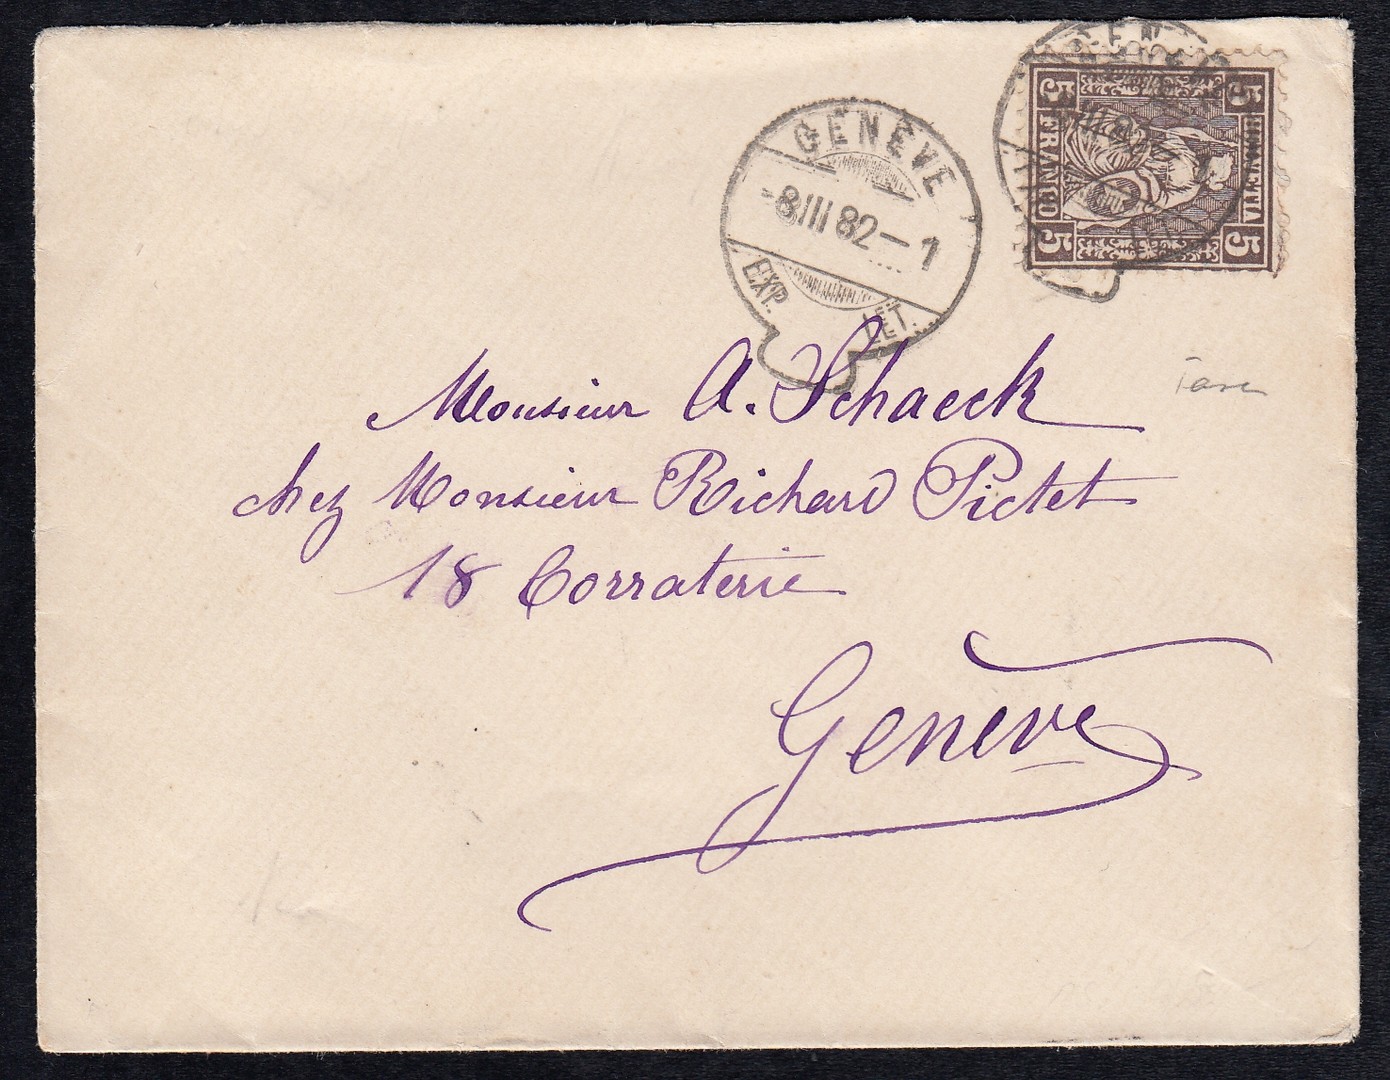 GENÈVE
-8.III 82-1
EXP. LET.
5 5
FRANCO
HELVETIA
5 5
Monsieur A. Schaeck
chez Monsieur Richard Pictet
18 Corraterie
Genève